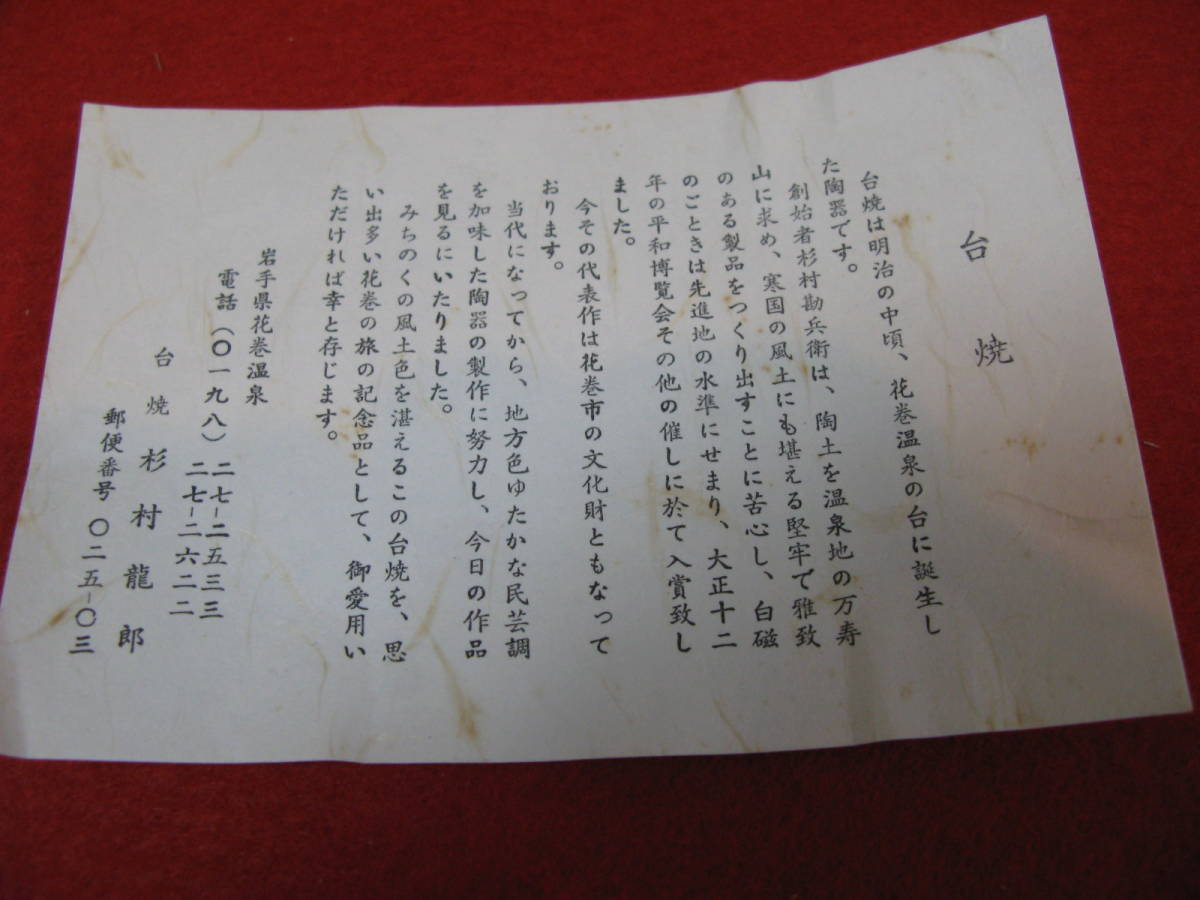 台焼
台焼は明治の中頃、花巻温泉の台に誕生し
た陶器です。
創始者杉村勘兵衛は、陶土を温泉地の万寿
山に求め、寒国の風土にも堪える堅牢で雅致
のある製品をつくり出すことに苦心し、白磁
のごときは先進地の水準にせまり、大正十二
年の平和博覧会その他の催しに於て入賞致し
ました。
今その代表作は花巻市の文化財ともなって
おります。
当代になってから、地方色ゆたかな民芸調
を加味した陶器の製作に努力し、今日の作品
を見るにいたりました。
みちのくの風土色を湛えるこの台焼を、思
い出多い花巻の旅の記念品として、御愛用い
ただければ幸と存じます。
岩手県花巻温泉
電話(〇一九八)二七-二五三三
二七-二六二二
台焼 杉村龍郎
郵便番号 〇二五-〇三